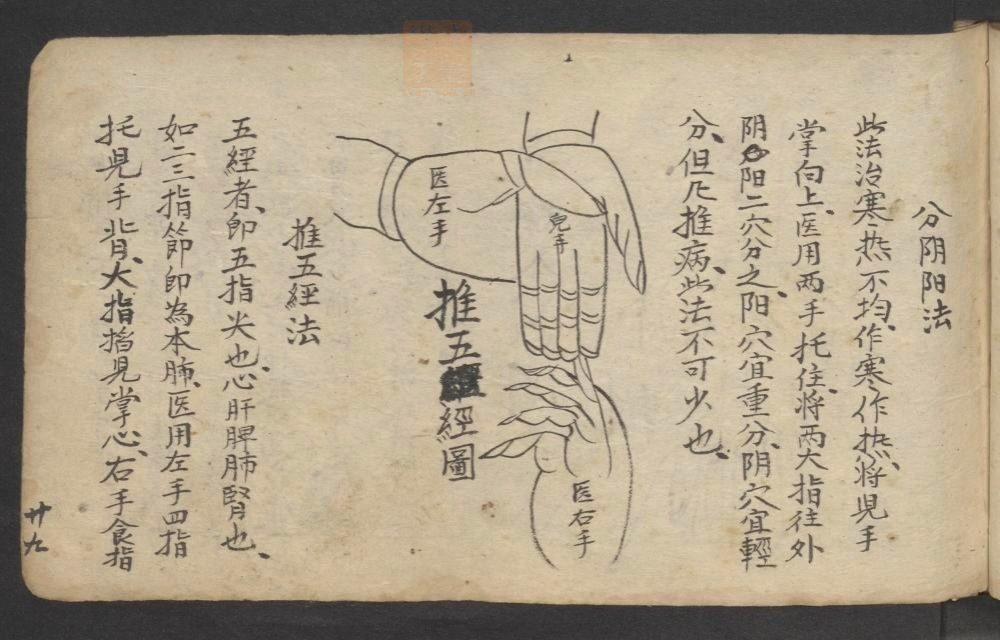 分阴阳法
此法治寒热不均、作寒作热、将児手
掌向上、医用两手托住、将两大指往外
阴阳二穴分之、阳穴宜重分、阴穴宜輕
分、但凡推病、此法不可少也、
児手
医左手
医右手
推五經圖
推五經法
五經者、即五指尖也、心肝脾肺腎也、
如二三指節即為本肺、医用左手四指
托児手背、大指掐児掌心、右手食指
廿九